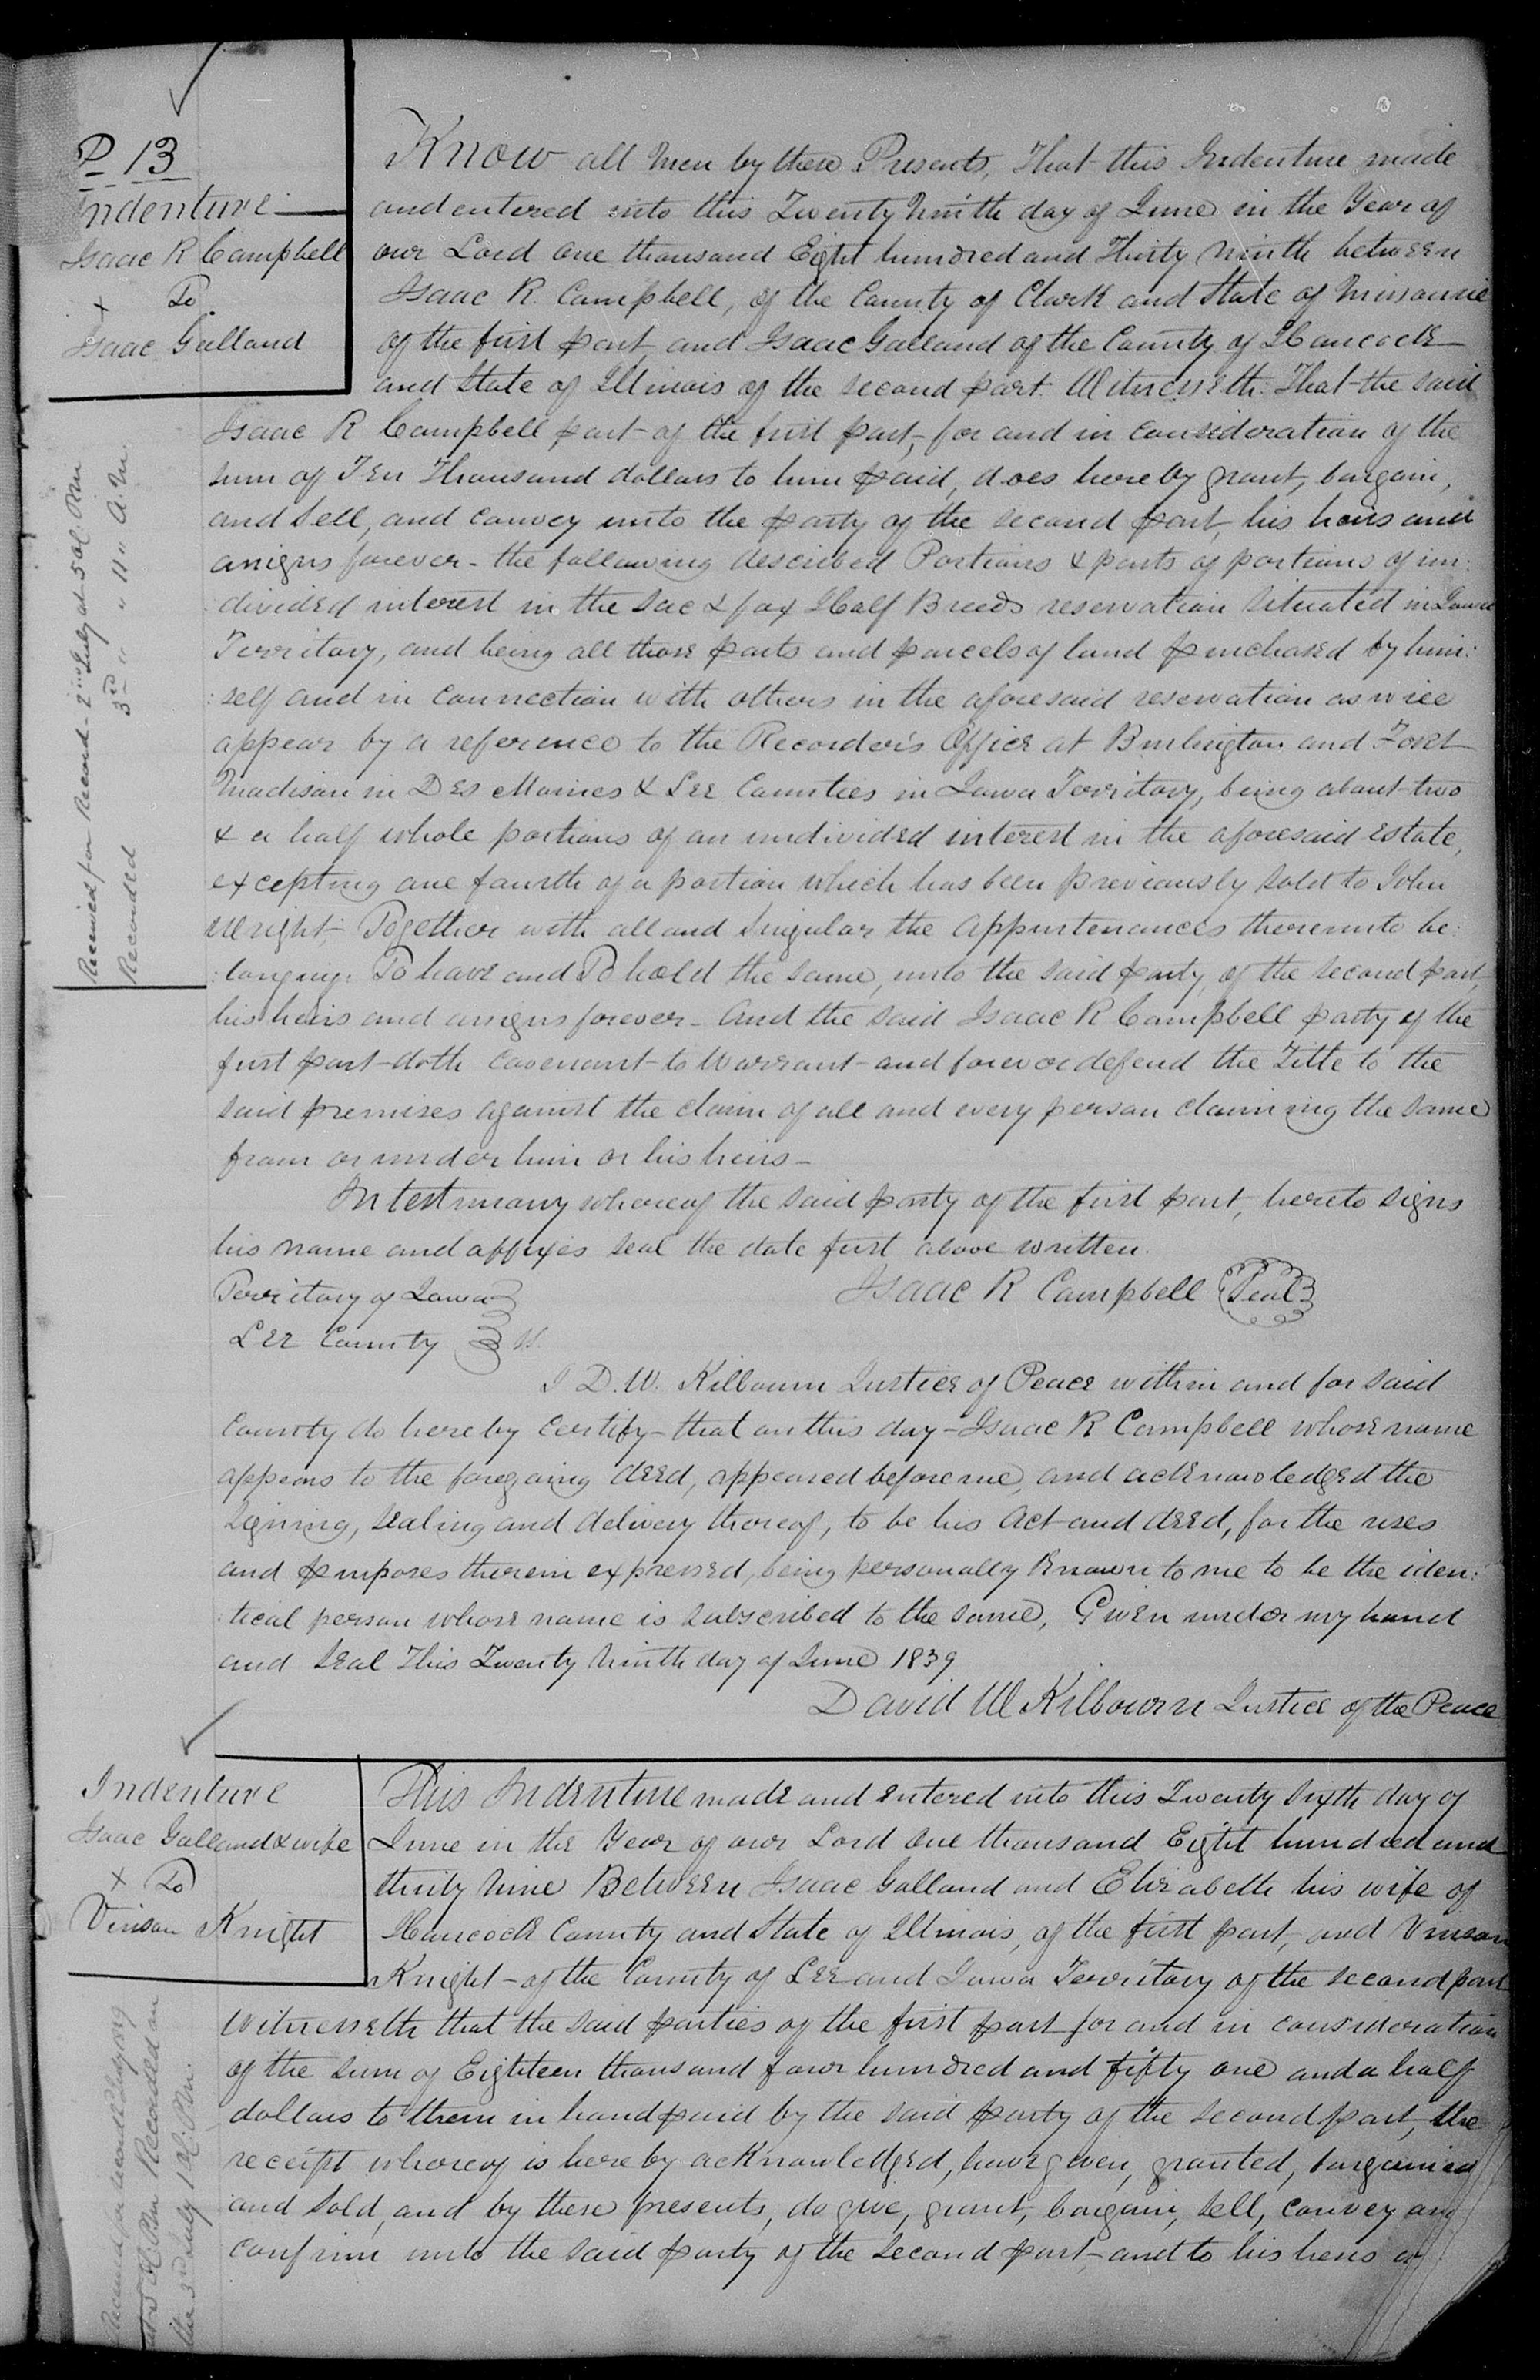 P 13
Indenture
Isaac R Campbell
+ To
Isaac Galland
Received for Record 2nd July at 5 ol. PM
Recorded 3rd " " 11 " A.M.
Know all Men by these Presents, That this Indenture made
and entered into this Twenty Ninth day of June in the Year of
our Lord One thousand Eight hundred and Thirty Ninth between
Isaac R. Campbell, of the County of Clark and State of Missourie
of the first part and Isaac Galland of the County of Hancock
and State of Illinois of the second part. Witnesseth: That the said
Isaac R Campbell part of the first part, for and in consideration of the
sum of Ten Thousand dollars to him paid, does hereby grant, bargain,
and Sell, and convey unto the party of the second part, his heirs and
assigns forever - the following described Portions & parts of portions of un:
divided interest in the Sac & fox Half Breeds reservation situated in Iowa
Territory, and being all those parts and parcels of land purchased by him:
:self and in connection with others in the aforesaid reservation as will
appear by a reference to the Recorder's Office at Burlington and Fort
Madison in Des Moines & Lee Counties in Iowa Territory, being about two
& a half whole portions of an undivided interest in the aforesaid Estate,
excepting one fourth of a portion which has been previously sold to John
Wright, Together with all and Singular the Appurtenances thereunto be:
:longing. To have and To hold the same, unto the said party, of the second part
his heirs and assigns forever - And the said Isaac R Campbell party of the
first part doth covenant to Warrant and forever defend the Title to the
said premises against the claim of all and every person claiming the same
from or under him or his heirs -
In testimony whereof the said party of the first part, hereto signs
his name and affixes seal the date first above written.
Isaac R Campbell Seal
Territory of Iowa
Lee County ss.
I D. W. Kilbourn Justice of Peace within and for said
County do hereby certify - that on this day - Isaac R Campbell whose name
appears to the foregoing deed, appeared before me, and acknowledged the
signing, sealing and delivery thereof, to be his Act and deed, for the uses
and purposes therein expressed, being personally Known to me to be the iden:
:tical person whose name is subscribed to the same, Given under my hand
and Seal This Twenty Ninth day of June 1839
David W Kilbourn Justice of the Peace
Indenture
Isaac Galland & wife
+ To
Vinson Knight
the 3rd July 1 ol. PM.
This Indenture made and entered into this Twenty Sixth day of
June in the Year of our Lord One thousand Eight hundred and
thirty Nine Between Isaac Galland and Elizabeth his wife of
Hancock County and State of Illinois, of the first part, and Vinson
Knight - of the County of Lee and Iowa Territory of the second part
Witnesseth that the said parties of the first part for and in consideration
of the Sum of Eighteen thousand four hundred and fifty one and a half
dollars to them in hand paid by the said party of the second part, the
receipt whereof is hereby acknowledged, have given, granted, bargained
and sold, and by these presents, do give, grant, bargain, sell, convey and
confirm unto the said party of the second part - and to his heirs